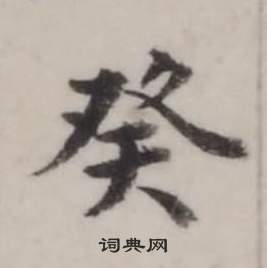 癸
词典网